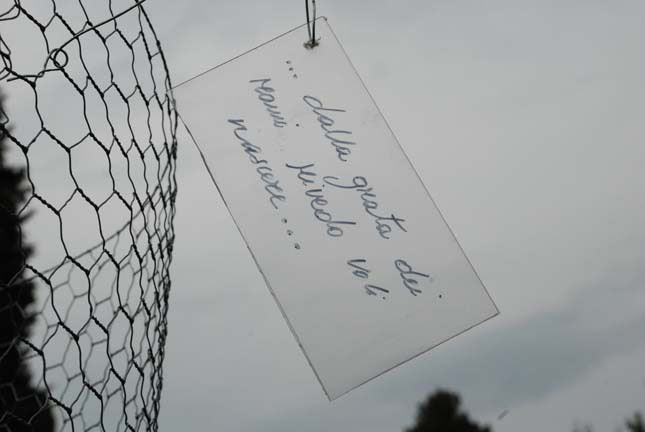 ... dalla grata dei
rami rivedo voli
nascere...